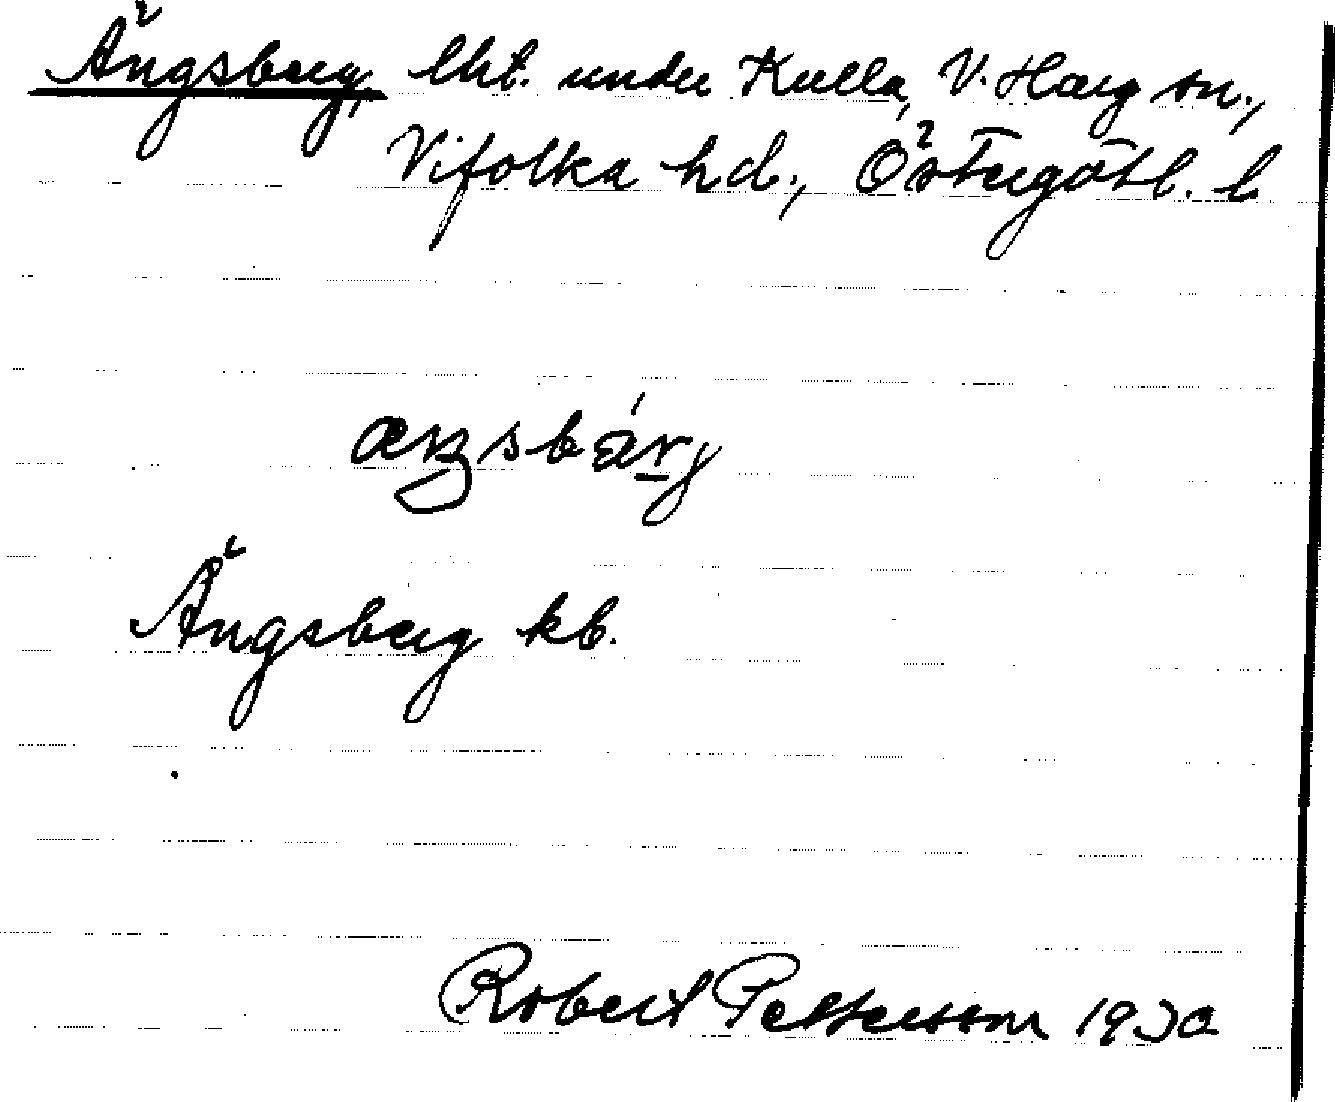 Ängsberg, lht. under Kulla, V. Harg sn.,
Vifolka hd., Östergötl. l
Ängsberg kb.
Robert Pettersson 1930